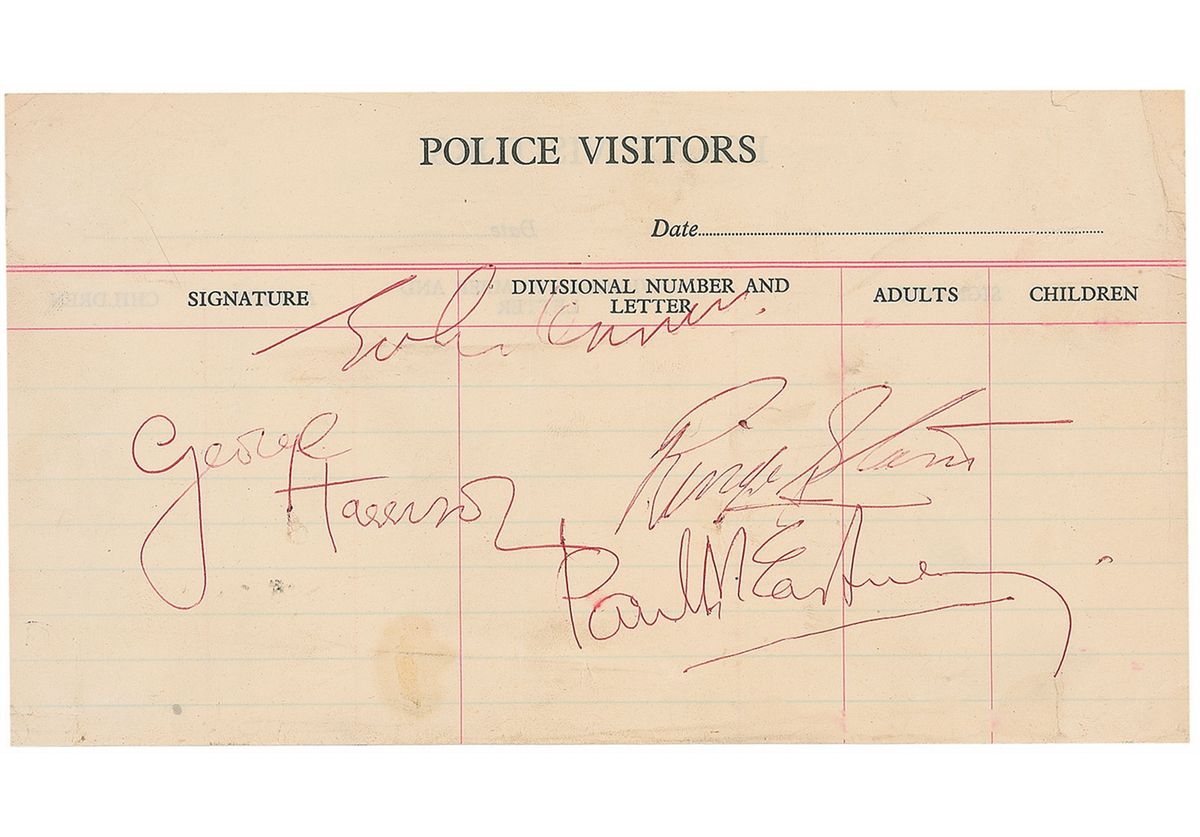 POLICE VISITORS
Date
SIGNATURE DIVISIONAL NUMBER AND LETTER ADULTS CHILDREN
John Lennon
George Harrison
Ringo Starr
Paul McCartney